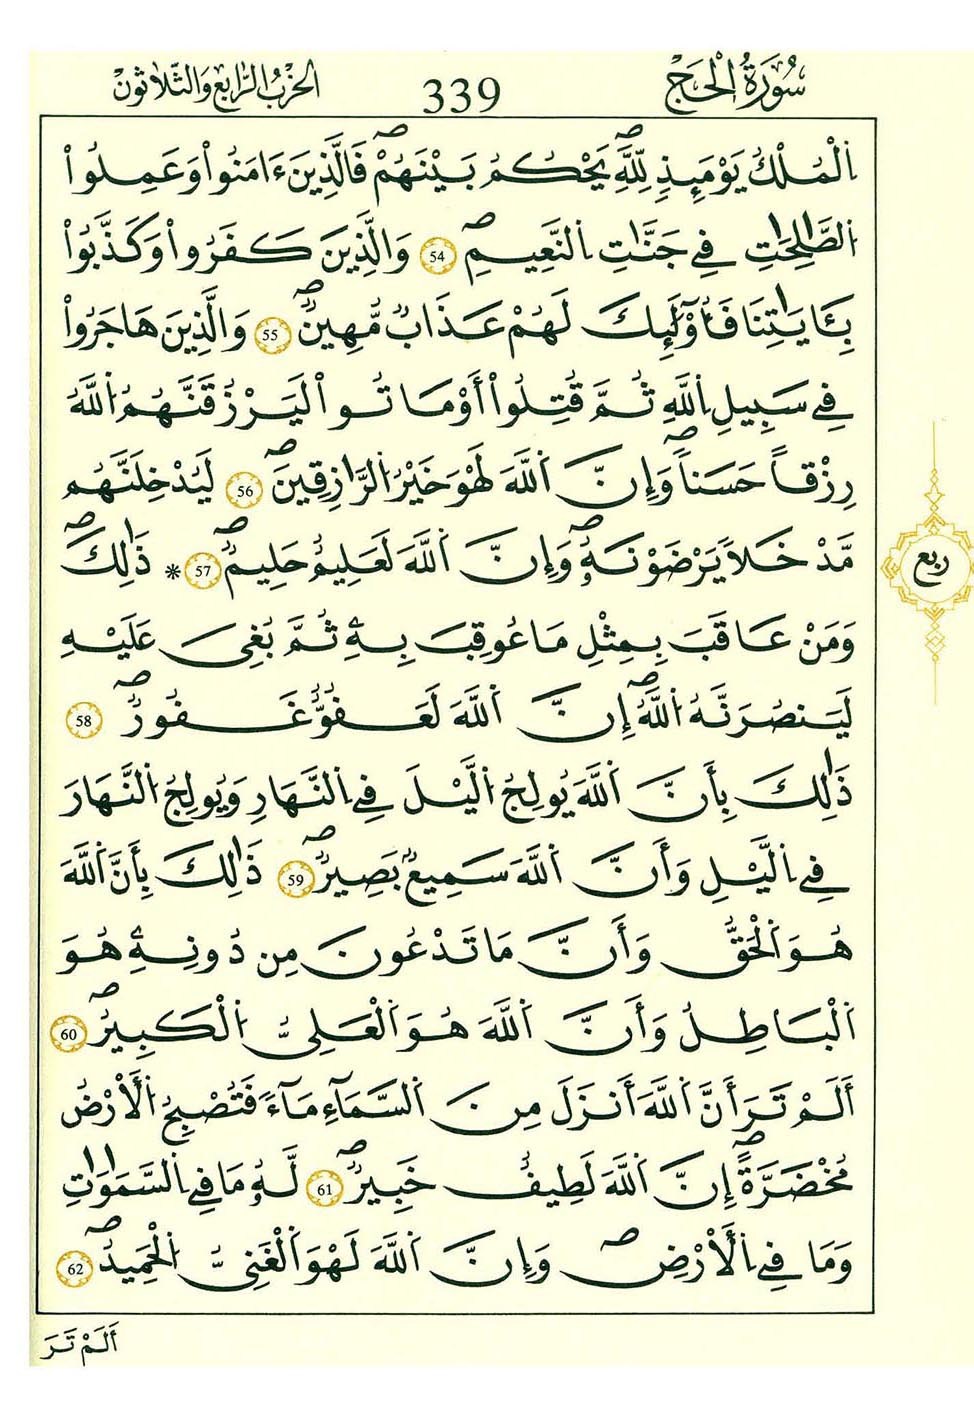 سُورَةُ الْحَجِّ 339 الْحِزْبُ الرَّابِعُ وَالثَّلَاثُونْ
اَ۬لْمُلْكُ يَوْمَئِذٖ لِّلهِۖ يَحْكُمُ بَيْنَهُمْۖ فَالذِينَ ءَامَنُواْ وَعَمِلُواْ
اُ۬لصَّٰلِحَٰتِ فِے جَنَّٰتِ اِ۬لنَّعِيمِۖ 54 وَالذِينَ كَفَرُواْ وَكَذَّبُواْ
بِـَٔايَٰتِنَا فَأُوْلَٰٓئِكَ لَهُمْ عَذَابٞ مُّهِينٞۖ 55 وَالذِينَ هَاجَرُواْ
فِے سَبِيلِ اِ۬للَّهِ ثُمَّ قُتِلُوٓاْ أَوْ مَاتُواْ لَيَرْزُقَنَّهُمُ اُ۬للَّهُ
رِزْقاً حَسَناٗۖ وَإِنَّ اَ۬للَّهَ لَهْوَ خَيْرُ اُ۬لرَّٰزِقِينَۖ 56 لَيُدْخِلَنَّهُم
مَّدْخَلاٗ يَرْضَوْنَهُۥۖ وَإِنَّ اَ۬للَّهَ لَعَلِيمٌ حَلِيمٞۖ 57 * ذَٰلِكَۖ
ربع
وَمَنْ عَاقَبَ بِمِثْلِ مَا عُوقِبَ بِهِۦ ثُمَّ بُغِيَ عَلَيْهِ
لَيَنصُرَنَّهُ اُ۬للَّهُۖ إِنَّ اَ۬للَّهَ لَعَفُوٌّ غَفُورٞۖ 58
ذَٰلِكَ بِأَنَّ اَ۬للَّهَ يُولِجُ اُ۬ليْلَ فِے اِ۬لنَّهَارِ وَيُولِجُ اُ۬لنَّهَارَ
فِے اِ۬ليْلِ وَأَنَّ اَ۬للَّهَ سَمِيعُۢ بَصِيرٞۖ 59 ذَٰلِكَ بِأَنَّ اَ۬للَّهَ
هُوَ اَ۬لْحَقُّ وَأَنَّ مَا تَدْعُونَ مِن دُونِهِۦ هُوَ
اَ۬لْبَٰطِلُ وَأَنَّ اَ۬للَّهَ هُوَ اَ۬لْعَلِيُّ اُ۬لْكَبِيرُۖ 60
أَلَمْ تَرَ أَنَّ اَ۬للَّهَ أَنزَلَ مِنَ اَ۬لسَّمَآءِ مَآءٗ فَتُصْبِحُ اُ۬لْأَرْضُ
مُخْضَرَّةًۖ إِنَّ اَ۬للَّهَ لَطِيفٌ خَبِيرٞۖ 61 لَّهُۥ مَا فِے اِ۬لسَّمَٰوَٰتِ
وَمَا فِے اِ۬لْأَرْضِۖ وَإِنَّ اَ۬للَّهَ لَهْوَ اَ۬لْغَنِيُّ اُ۬لْحَمِيدُۖ 62
أَلَمْ تَرَ